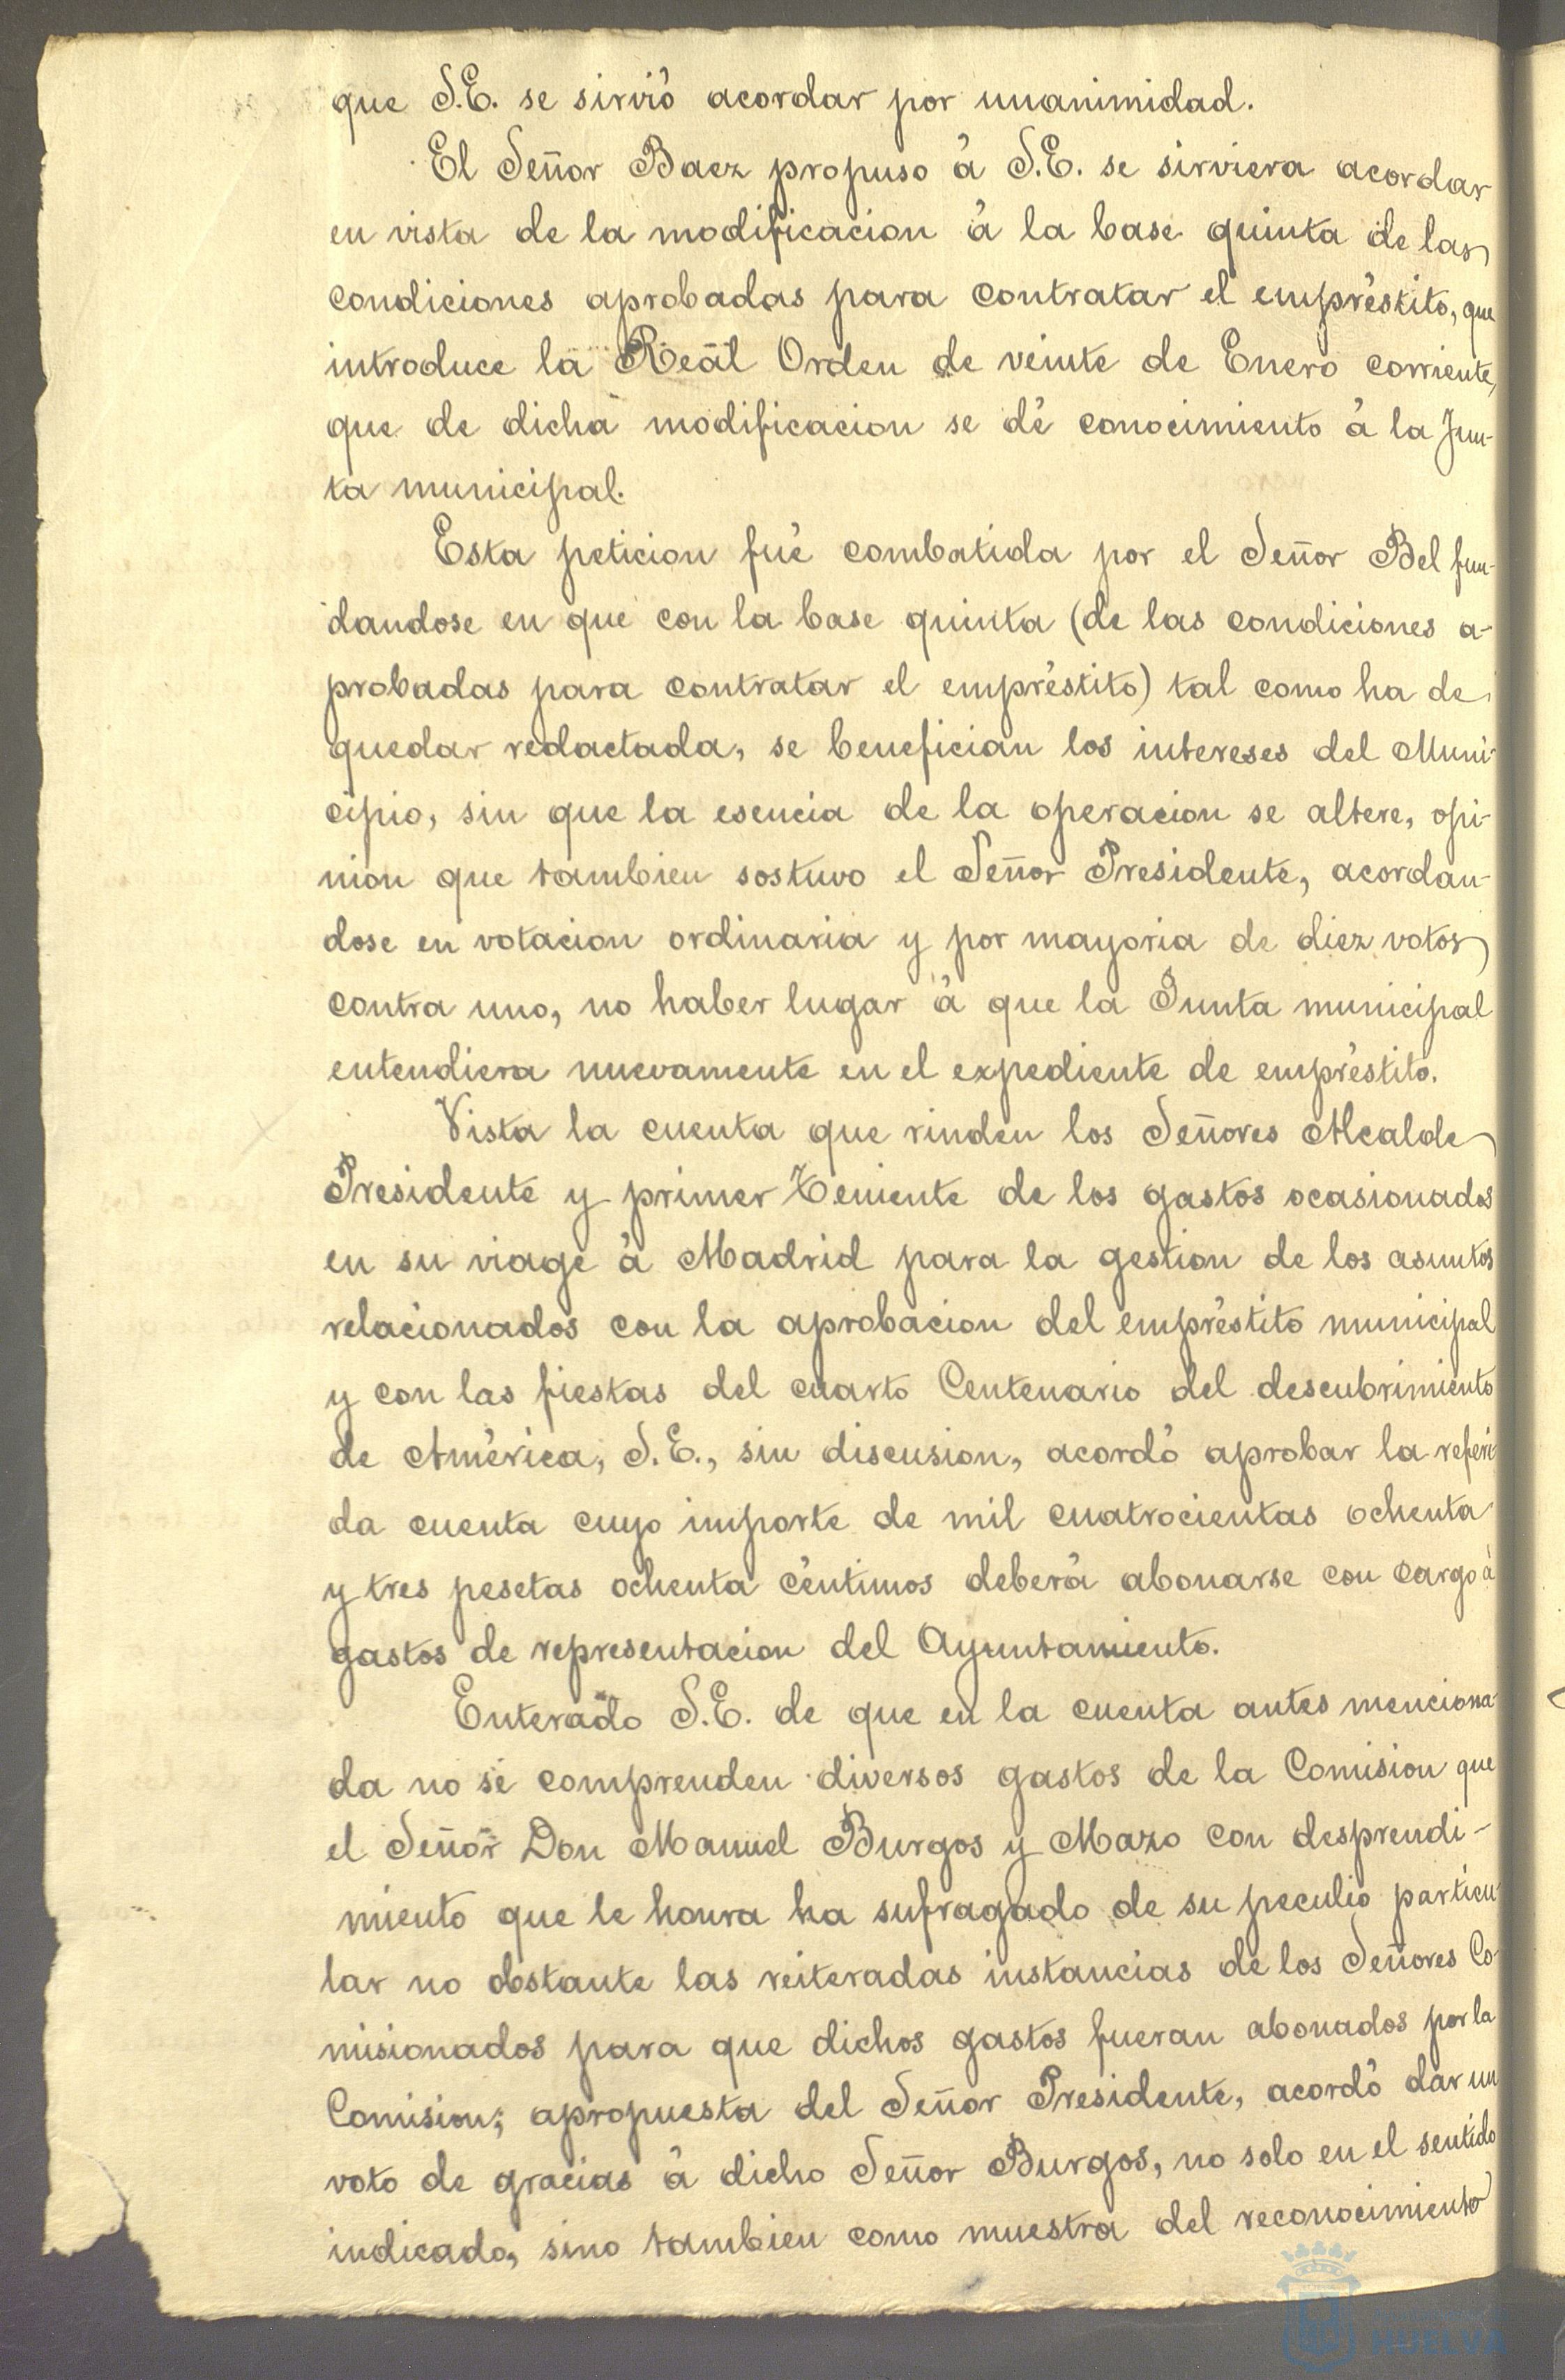 que S.E. se sirvió acordar por unanimidad.
El Señor Baez propuso á S.E. se sirviera acordar
en vista de la modificacion á la base quinta de las
condiciones aprobadas para contratar el empréstito, que
introduce la Real Orden de veinte de Enero corriente,
que de dicha modificacion se dé conocimiento á la Jun-
ta municipal.
Esta peticion fué combatida por el Señor Bel fun-
dandose en que con la base quinta (de las condiciones a-
probadas para contratar el empréstito) tal como ha de
quedar redactada, se benefician los intereses del Muni-
cipio, sin que la esencia de la operacion se altere, opi-
nion que tambien sostuvo el Señor Presidente, acordan-
dose en votacion ordinaria y por mayoria de diez votos
contra uno, no haber lugar á que la Junta municipal
entendiera nuevamente en el expediente de empréstito.
Vista la cuenta que rinden los Señores Alcalde
Presidente y primer Teniente de los gastos ocasionados
en su viage á Madrid para la gestion de los asuntos
relacionados con la aprobacion del empréstito municipal
y con las fiestas del cuarto Centenario del descubrimiento
de América, S.E., sin discusion, acordó aprobar la referi
da cuenta cuyo importe de mil cuatrocientas ochenta
y tres pesetas ochenta céntimos deberá abonarse con cargo á
gastos de representacion del Ayuntamiento.
Enterado S.E. de que en la cuenta antes menciona-
da no se comprenden diversos gastos de la Comision que
el Señor Don Manuel Burgos y Mazo con desprendi-
miento que le honra ha sufragado de su peculio particu-
lar no obstante las reiteradas instancias de los Señores Co-
misionados para que dichos gastos fueran abonados por la
Comision; apropuesta del Señor Presidente, acordó dar un
voto de gracias á dicho Señor Burgos, no solo en el sentido
indicado, sino tambien como muestra del reconocimiento
HUELVA